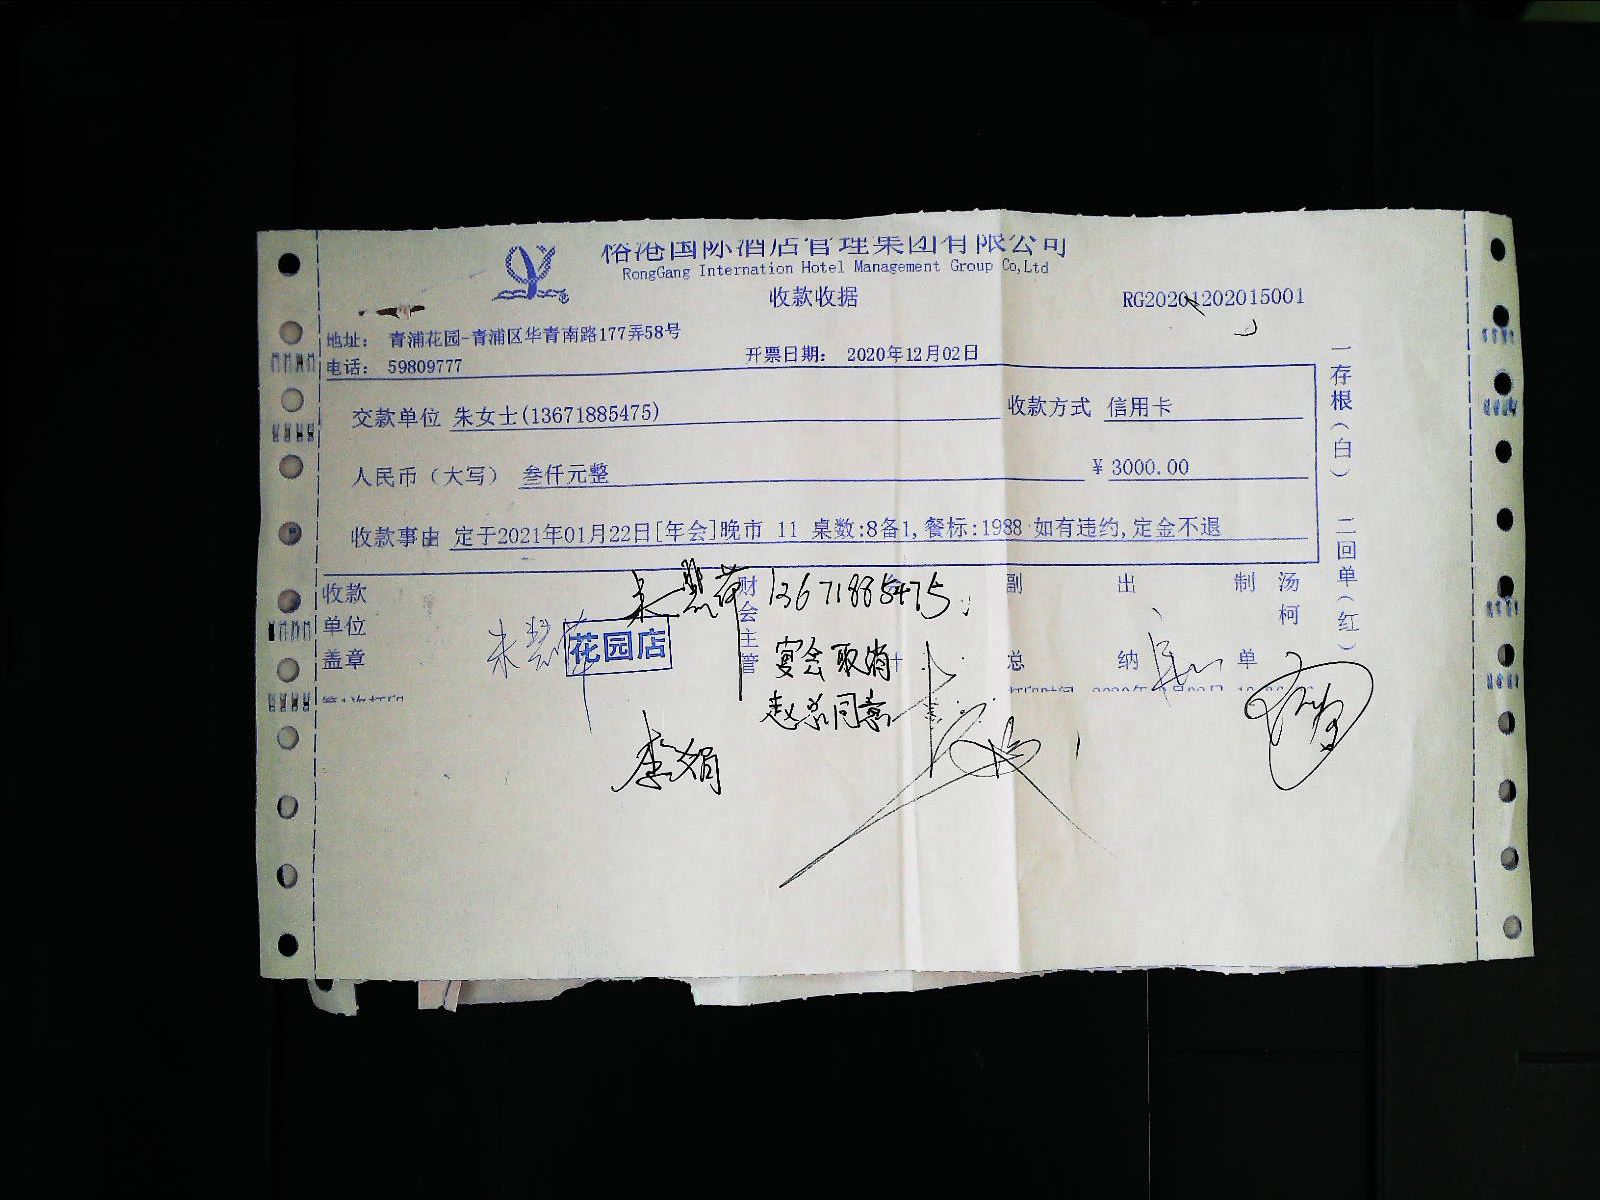 国际酒店管理集团有限公司
RongGang Internation Hotel Management Group Co,Ltd
收款收据
RG20201202015001
地址： 青浦花园-青浦区华青南路177弄58号
电话： 59809777
开票日期： 2020年12月02日
交款单位 朱女士(13671885475)
收款方式 信用卡
人民币（大写） 叁仟元整
¥ 3000.00
收款事由 定于2021年01月22日[年会]晚市 11 桌数:8备1,餐标:1988 如有违约,定金不退
一存根（白） 二回单（红）
收款单位盖章
花园店
财会主管
副总
出纳
制单
汤柯
朱慧萍 13671885475
朱慧萍
宴会取消
赵总同意
李娟